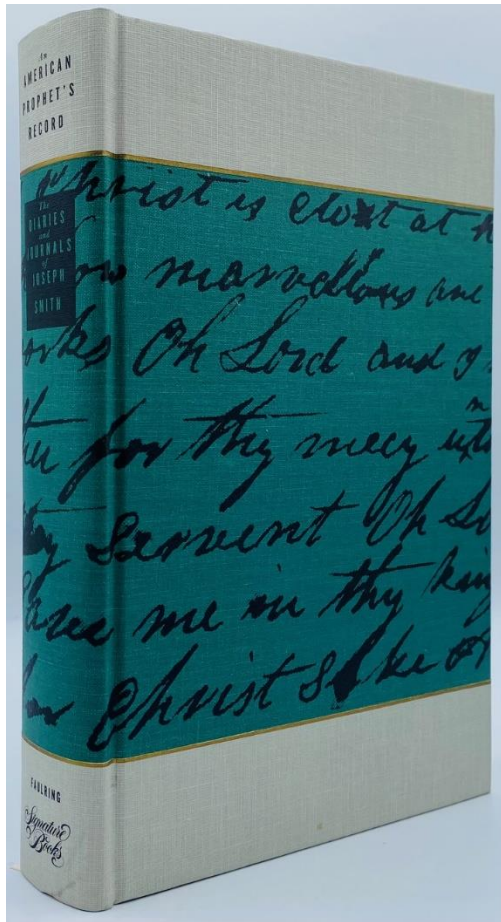 An
AMERICAN
PROPHET'S
RECORD
The
DIARIES
and
JOURNALS
of
JOSEPH
SMITH
FAULRING
Signature
Books
Christ is clost at h
marvellous are
orks Oh Lord and g
for thy mercy
n
Servent Oh
me in thy king
Christ Sake